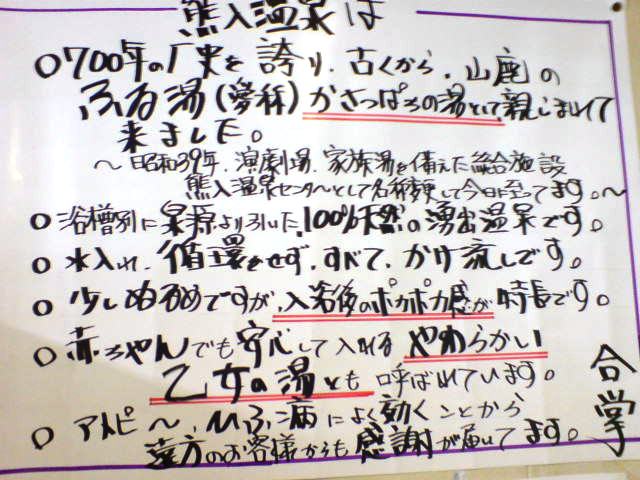 熊入温泉は
○700年の歴史を誇り、古くから、山鹿の
ふる湯(夢秤)かさっぱちの湯として、親しまれて
来ました。
〜昭和39年、演劇場、家族湯を備えた総合施設
熊入温泉センターとして名称変更して今日に至ってます。〜
○浴槽別に泉源より引いた、100%天然の湧出温泉です。
○水入れ、循環をせず、すべて、かけ流しです。
○少しぬるめですが、入浴後のポカポカ感が特長です。
○赤ちゃんでも安心して入れるやわらかい
乙女の湯とも呼ばれています。
○アトピ〜、ひふ病によく効くことから
遠方のお客様からも感謝が届いてます。
合掌